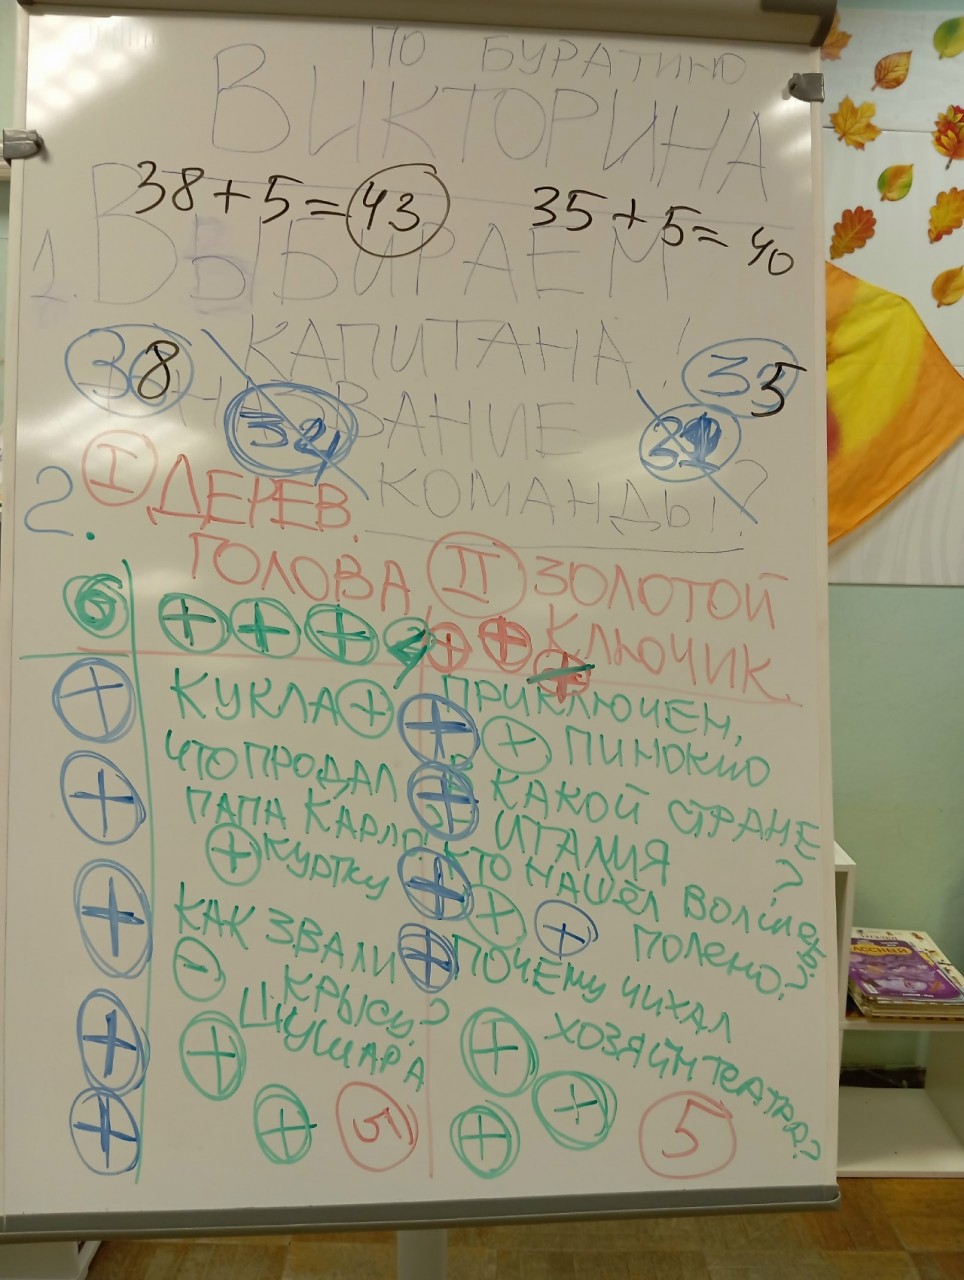 ПО БУРАТИНО
ВИКТОРИНА
38+5=43 35+5=40
1. ВЫБИРАЕМ
КАПИТАНА!
38 35
НАЗВАНИЕ
34 31
КОМАНДЫ?
2. I ДЕРЕВ. ГОЛОВА
II ЗОЛОТОЙ КЛЮЧИК
6 + + + 2 + + +
КУКЛА +
ЧТО ПРОДАЛ
ПАПА КАРЛО?
+ КУРТКУ
КАК ЗВАЛИ
- КРЫСУ?
ШУШАРА
+
+ 5
+ + + + +
ПРИКЛЮЧЕН,
+ ПИНОКИО
В КАКОЙ СТРАНЕ
ИТАЛИЯ ?
КТО НАШЁЛ ВОЛШЕБ.
+ + ПОЛЕНО?
ПОЧЕМУ ЧИХАЛ
ХОЗЯИН ТЕАТРА?
+ +
+ 5
+ + + +